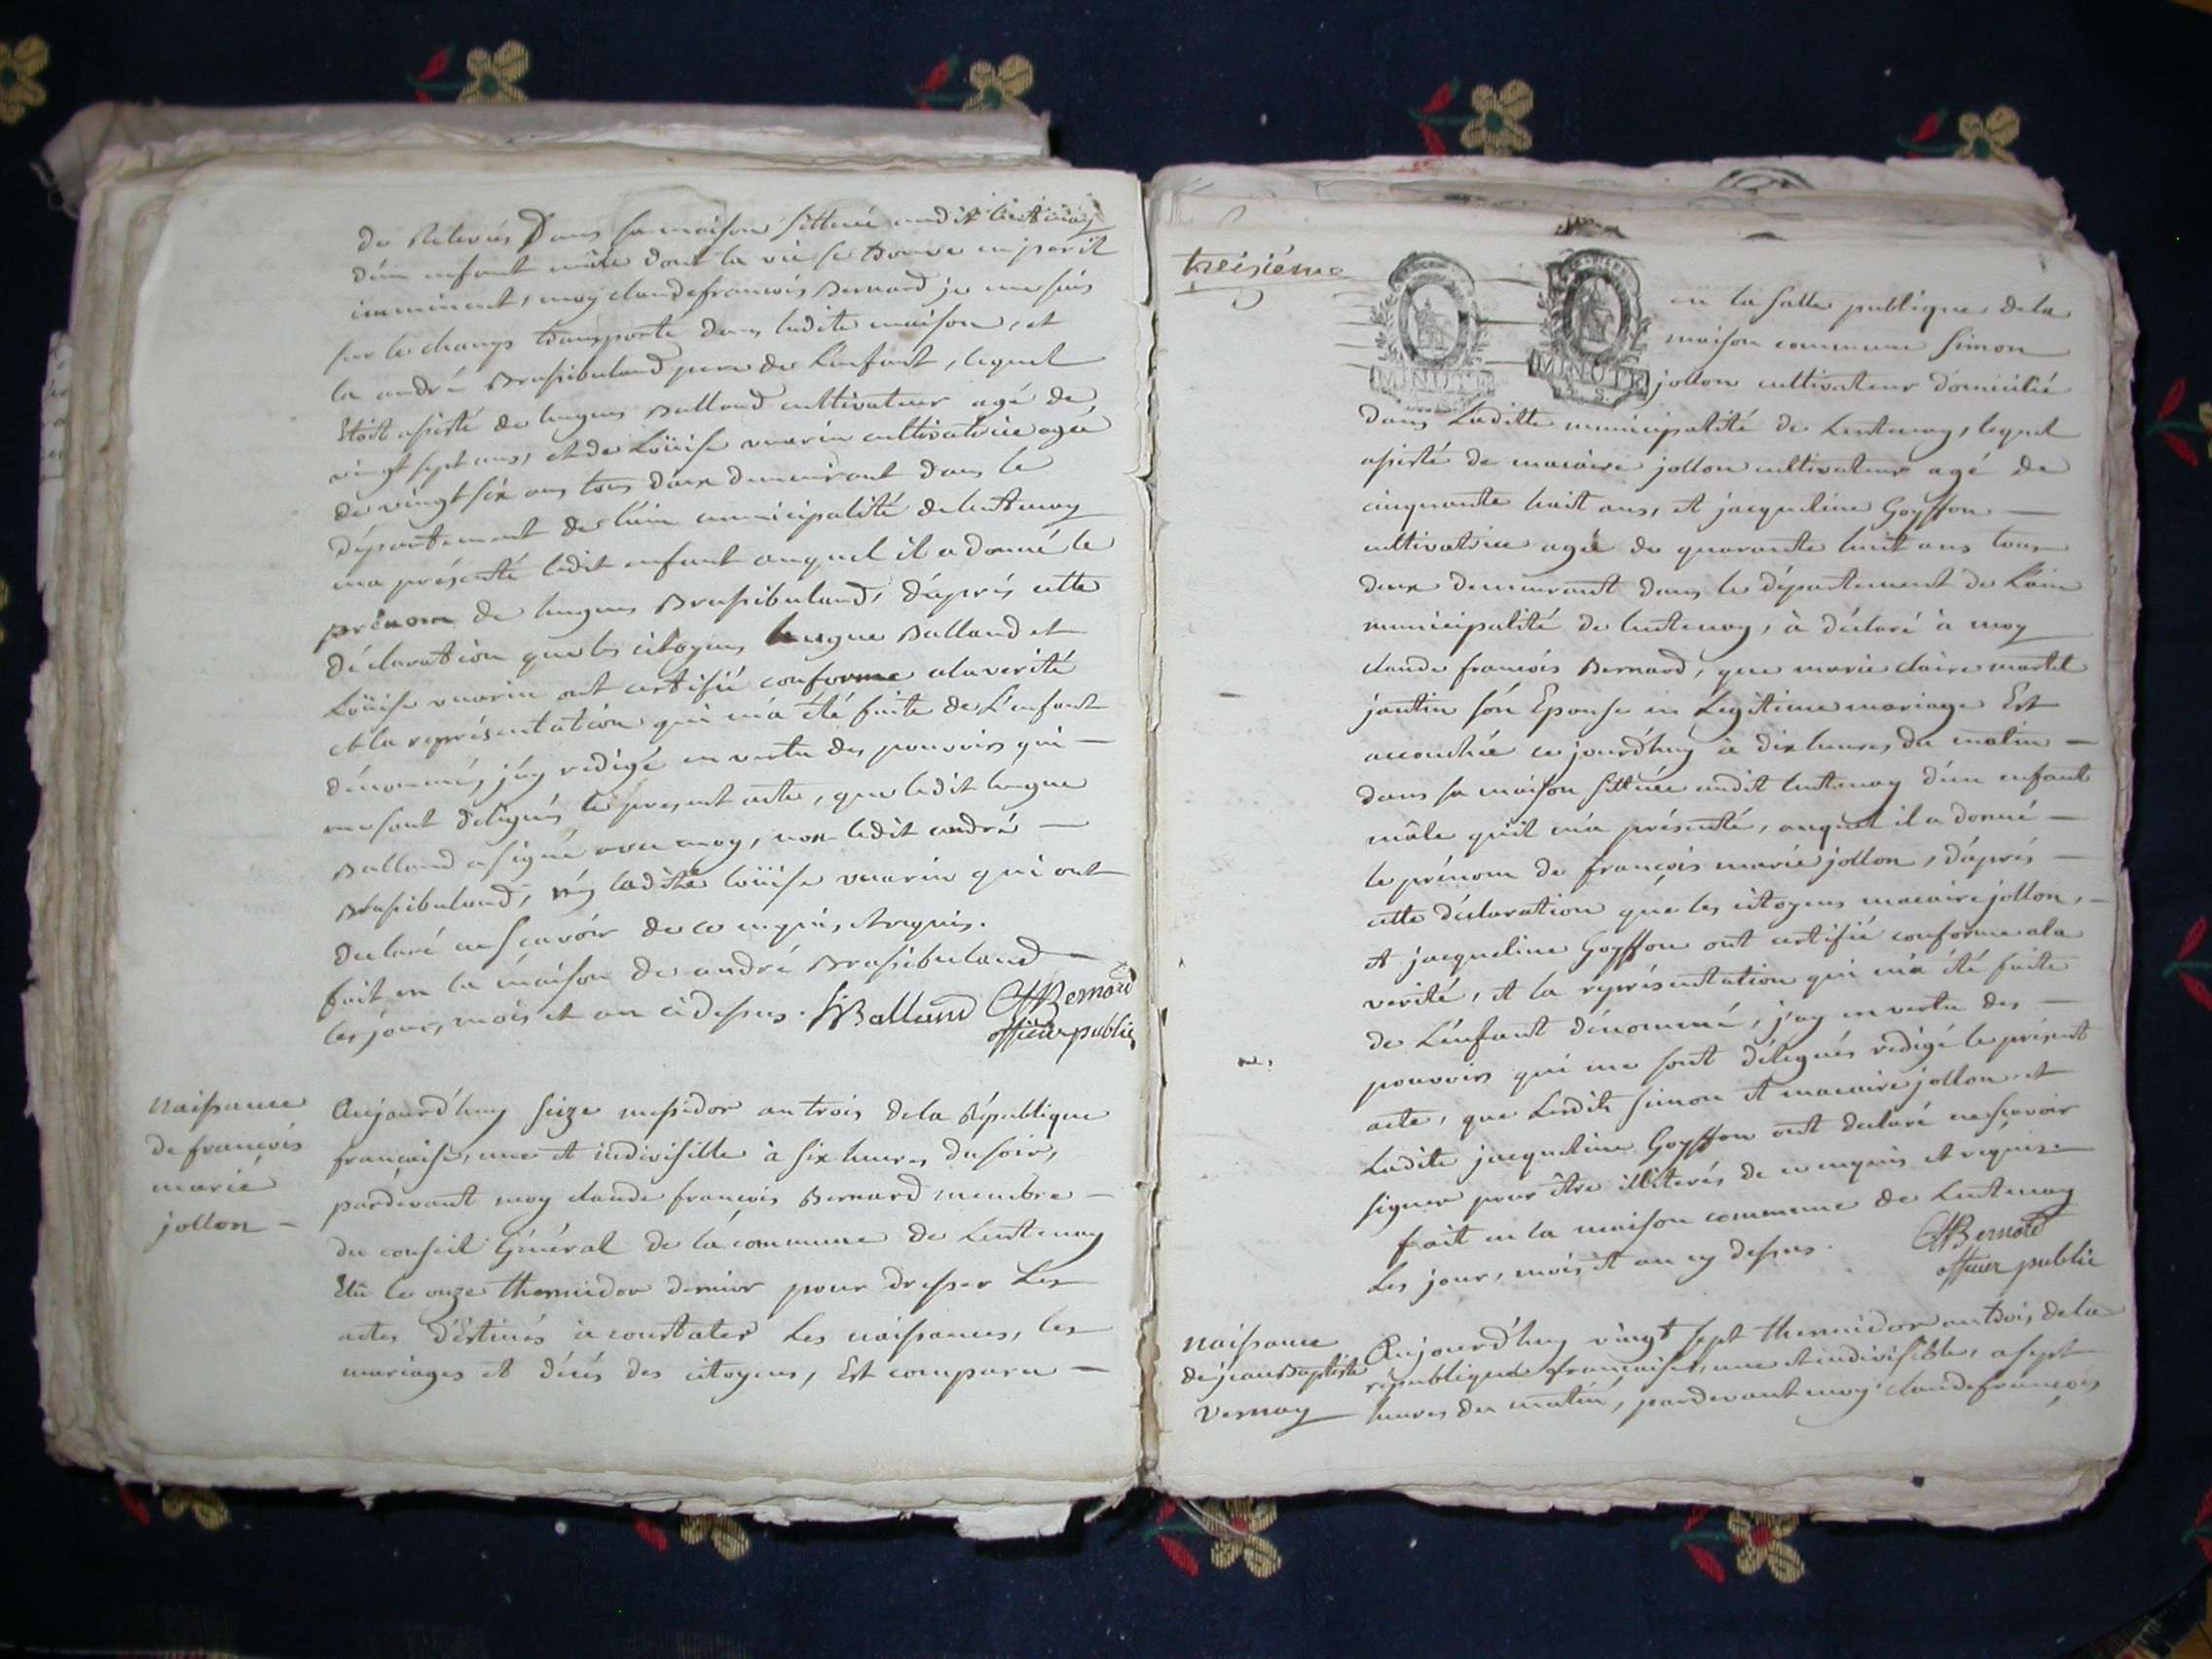 de Relevés Dans sa maison sittuée audit lentenay
d'un enfant mâle dont la vie se trouve en peril
imminent, moy claude françois Bernard je me suis
sur le champs transporté dans ladite maison, et
la andré Brasibuland pere de L'enfant, lequel
Etoit assisté de hugues Balland cultivateur agé de
vingt sept ans, et de Loüise vuarin cultivatrice agée
de vingt six ans tous deux demeurant dans le
département de l'ain municipalité de lentenay
m'a présenté ledit enfant auquel il a donné le
prénom de hugues Brasibuland, d'après cette
déclaration que les citoyens hugue Balland et
Loüise vuarin ont certifié conforme a la verité
et la représentation qui m'a été faite de L'enfant
dénommé, j'ay redigé en vertu des pouvoirs qui
me sont délegués le present acte, que ledit hugue
Balland a signé avec moy, non ledit andré
Brasibuland, ny ladite loüise vuarin qui ont
declaré ne sçavoir de ce enquis et requis.
fait en la maison de andré Brasibuland
les jour, mois et an ci dessus. Balland Bernard
officier public
naissance
de françois
marie
jollon
Aujourd'huy seize messidor an trois de la République
française, une et indivisible à six heures du soir,
pardevant moy claude françois Bernard membre
du conseil Général de la commune de Lentenay
Elû le onze thermidor dernier pour dresser Les
actes déstinés à constater Les naissances, les
mariages et décés des citoyens, Est comparu
treisiéme
MINUTE MINUTE
en la salle publique de la
maison commune simon
jollon cultivateur domicilié
dans Laditte municipalité de Lentenay, lequel
assisté de macaire jollon cultivateur agé de
cinquante huit ans, et jacqueline Goyffon
cultivatrice agée de quarante huit ans tous
deux demeurant dans le département de L'ain
municipalité de lentenay, à déclaré à moy
claude françois Bernard, que marie claire martel
jantin són Epouse en Légitime mariage Est
accouchée ce jourd'huy à dix heures du matin
dans sa maison sittuée audit lentenay d'un enfant
mâle qu'il m'a présenté, auquel il a donné
le prénom de françois marie jollon, d'aprés
cette déclaration que les citoyens macaire jollon,
et jacqueline Goyffon ont certifié conforme a la
verité, et la représentation qui m'a été faite
de L'enfant dénommé, j'ay en vertu des
pouvoirs qui me sont délegués redigé le présent
acte, que Lesdits simon et macaire jollon et
Ladite jacqueline Goyffon ont declaré ne sçavoir
signer pour être illiterés de ce enquis et requis
fait en la maison commune de Lentenay
Les jour, mois et an cy dessus. Bernard
officier public
naissance
de jean Baptiste
vernay
Aujourd'huy vingt sept thermidor an trois de la
république française, une et indivisible, a sept
heures du matin, pardevant moy claude françois